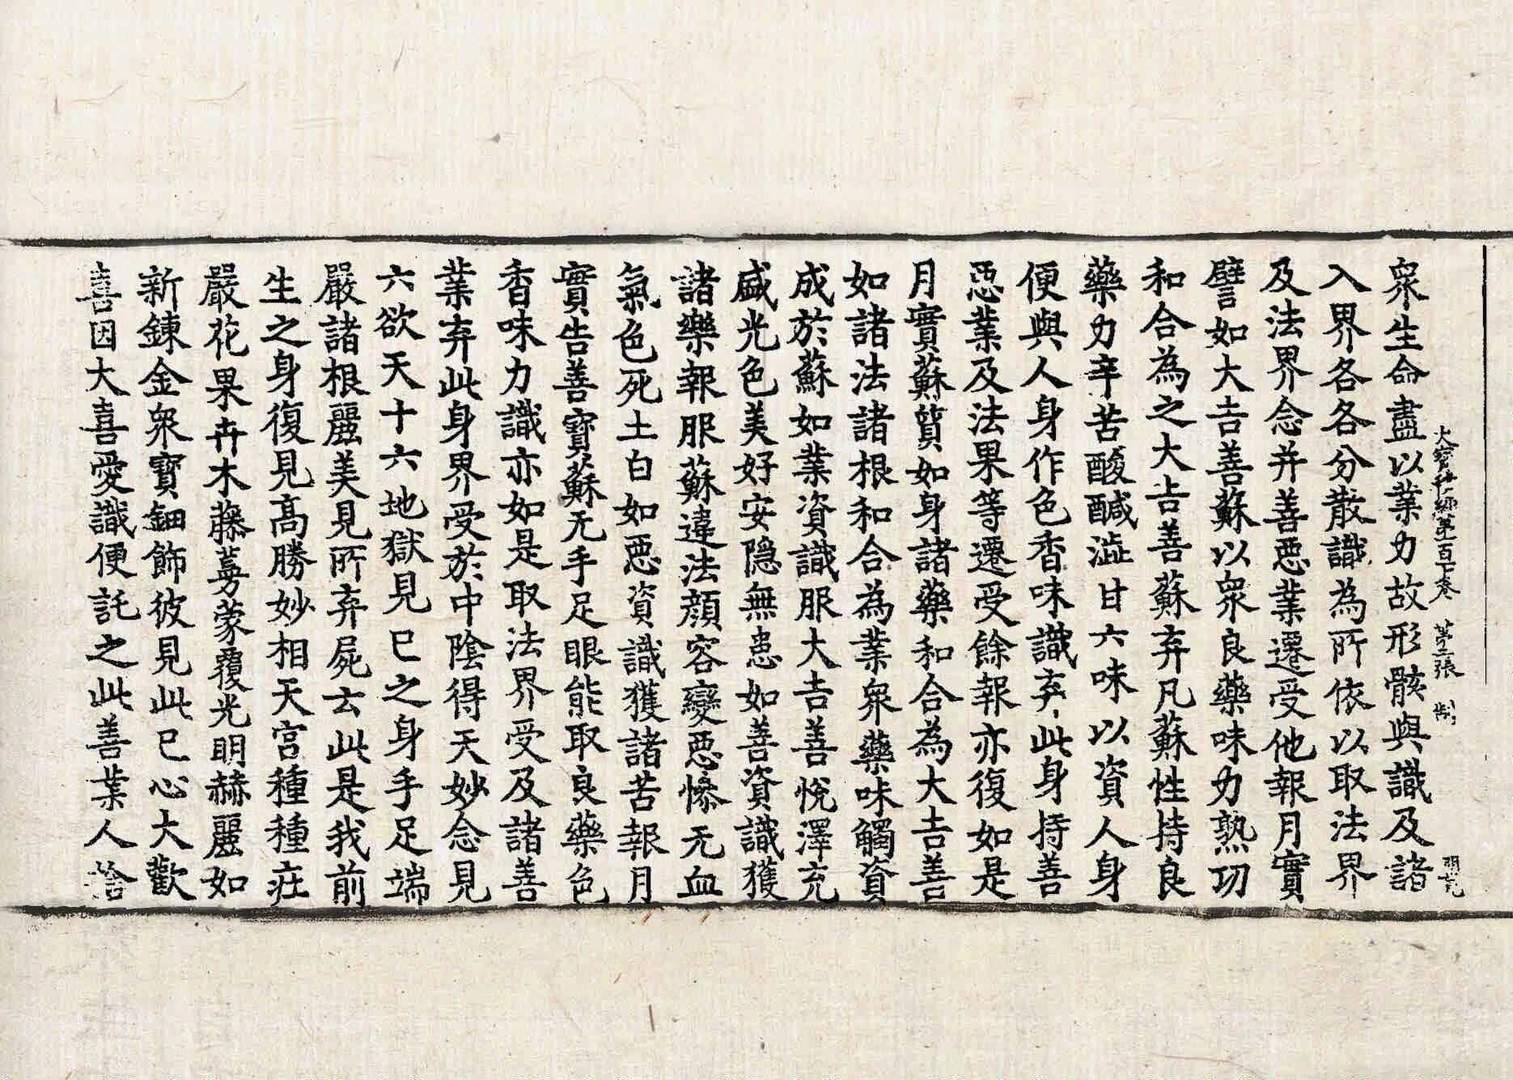 衆生命盡以業力故形骸與識及諸
大寶積經第一百十卷　第二張　制
入界各各分散識為所依以取法界
及法界念并善惡業遷受他報月實
譬如大吉善蘇以衆良藥味力熟功
和合為之大吉善蘇弃凡蘇性持良
藥力辛苦酸醎澁甘六味以資人身
便與人身作色香味識弃此身持善
惡業及法果等遷受餘報亦復如是
月實蘇質如身諸藥和合為大吉善
如諸法諸根和合為業衆藥味觸資
成於蘇如業資識服大吉善悅澤充
盛光色美好安隱無患如善資識獲
諸樂報服蘇違法顏容變惡慘无血
氣色死土白如惡資識獲諸苦報月
實吉善寶蘇无手足眼能取良藥色
香味力識亦如是取法界受及諸善
業弃此身界受於中陰得天妙念見
六欲天十六地獄見巳之身手足端
嚴諸根麗美見所弃屍去此是我前
生之身復見高勝妙相天宮種種莊
嚴花果卉木藤蔓蒙覆光明赫麗如
新鍊金衆寶鈿飾彼見此巳心大歡
喜因大喜愛識便託之此善業人捨